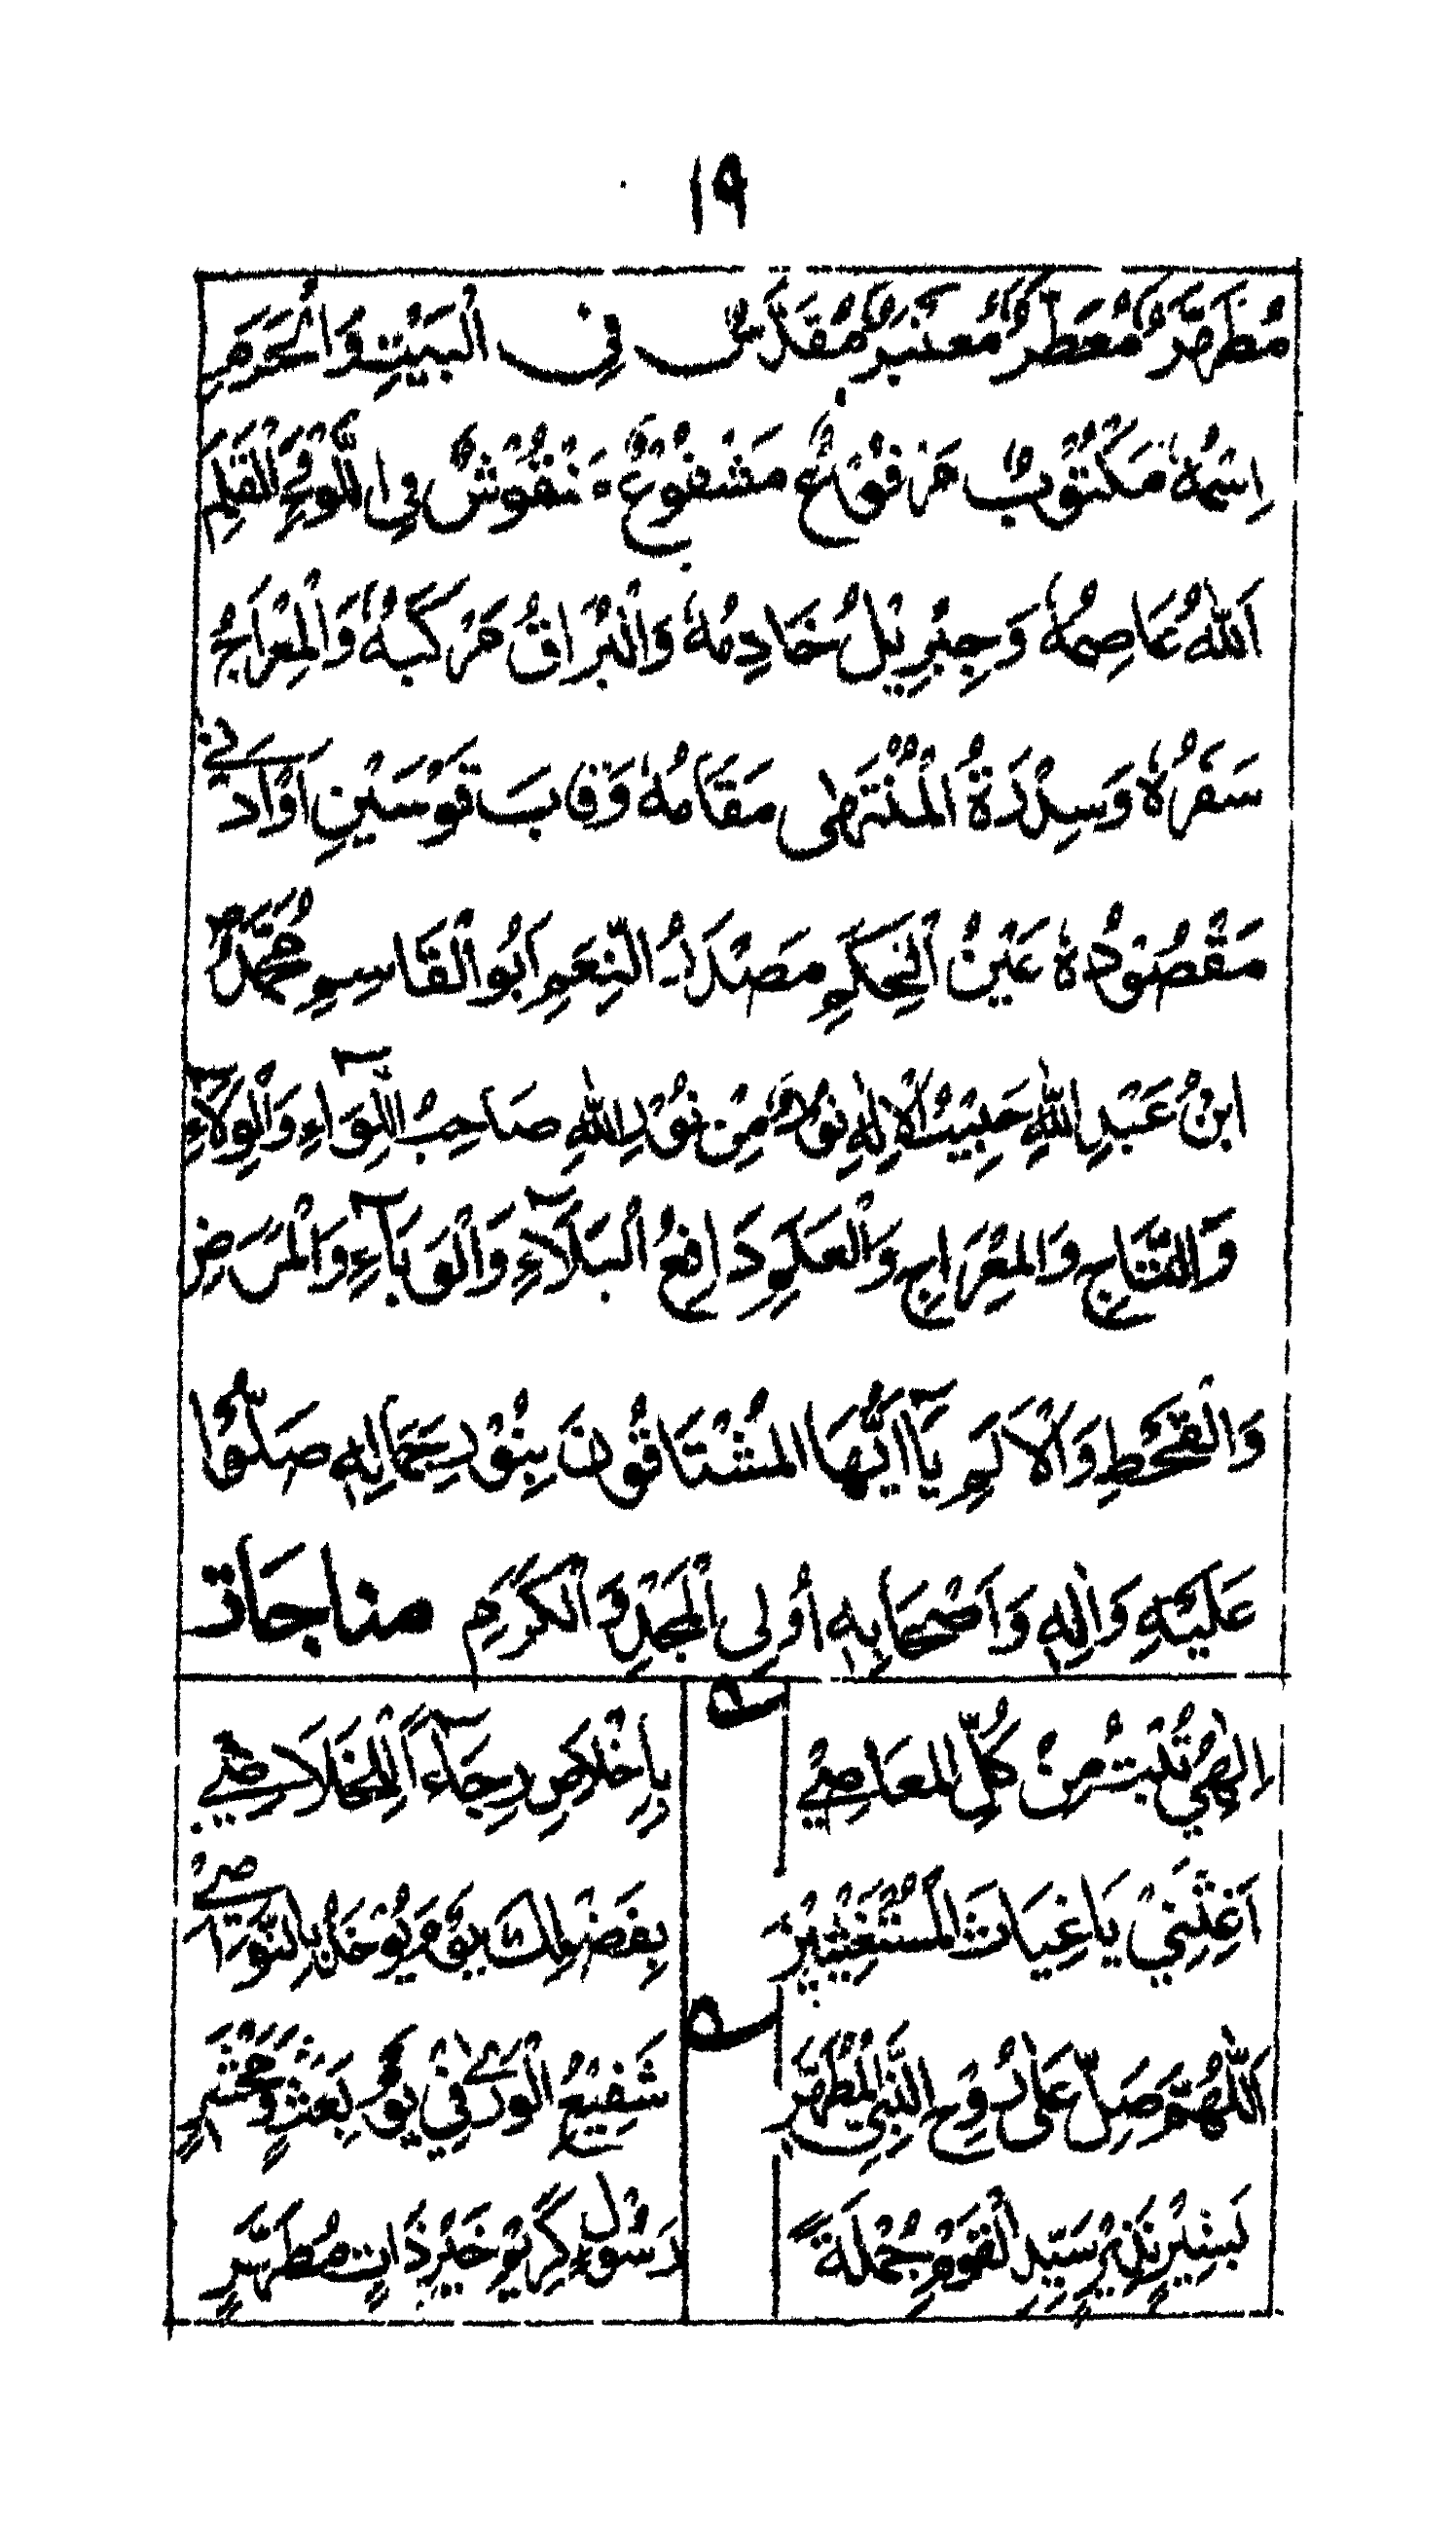 ١٩
مُطَهَّرٌ مُعَطَّرٌ مُعَنْبَرٌ مُقَدَّسٌ فِی الْبَيْتِ وَالْحَرَمِ
اِسْمُهٗ مَكْتُوْبٌ مَرْفُوْعٌ مَشْفُوْعٌ مَنْقُوْشٌ فِی اللَّوْحِ وَالْقَلَمِ
اَللّٰهُ عَاصِمُهٗ وَجِبْرِيْلُ خَادِمُهٗ وَالْبُرَاقُ مَرْكَبُهٗ وَالْمِعْرَاجُ
سَفَرُهٗ وَسِدْرَةُ الْمُنْتَهٰی مَقَامُهٗ وَقَابَ قَوْسَيْنِ اَوْ اَدْنٰی
مَقْصُوْدُهٗ عَيْنُ الْحِكَمِ مَصْدَرُ النِّعَمِ اَبُو الْقَاسِمِ مُحَمَّدُ
ابْنُ عَبْدِ اللّٰهِ حَبِيْبُ الْاِلٰهِ نُوْرٌ مِّنْ نُّوْرِ اللّٰهِ صَاحِبُ اللِّوَآءِ وَالْوِلَآءِ
وَالتَّاجِ وَالْمِعْرَاجِ وَالْعَلَمِ دَافِعُ الْبَلَآءِ وَالْوَبَآءِ وَالْمَرَضِ
وَالْقَحْطِ وَالْاَلَمِ يَآ اَيُّهَا الْمُشْتَاقُوْنَ بِنُوْرِ جَمَالِهٖ صَلُّوْا
عَلَيْهِ وَاٰلِهٖ وَاَصْحَابِهٖ اُولِی الْمَجْدِ وَالْكَرَمِ مناجات
اِلٰهِيْ تُبْتُ مِنْ كُلِّ الْمَعَاصِيْ بِاِخْلَاصٍ رِجَآءً لِلْخَلَاصِيْ
اَغِثْنِيْ يَا غِيَاثَ الْمُسْتَغِيْثِيْنَ بِفَضْلِكَ يَوْمَ يُؤْخَذُ بِالنَّوَاصِيْ
اَللّٰهُمَّ صَلِّ عَلٰى رُوْحِ النَّبِيِّ الْمُطَهَّرِ شَفِيْعُ الْوَرٰى فِيْ يَوْمِ بَعْثٍ وَّمَحْشَرٍ
بَشِيْرٍ نَذِيْرٍ سَيِّدِ الْقَوْمِ جُمْلَةً رَسُوْلٍ كَرِيْمٍ خَيْرِ ذَاتٍ مُطَهَّرٍ